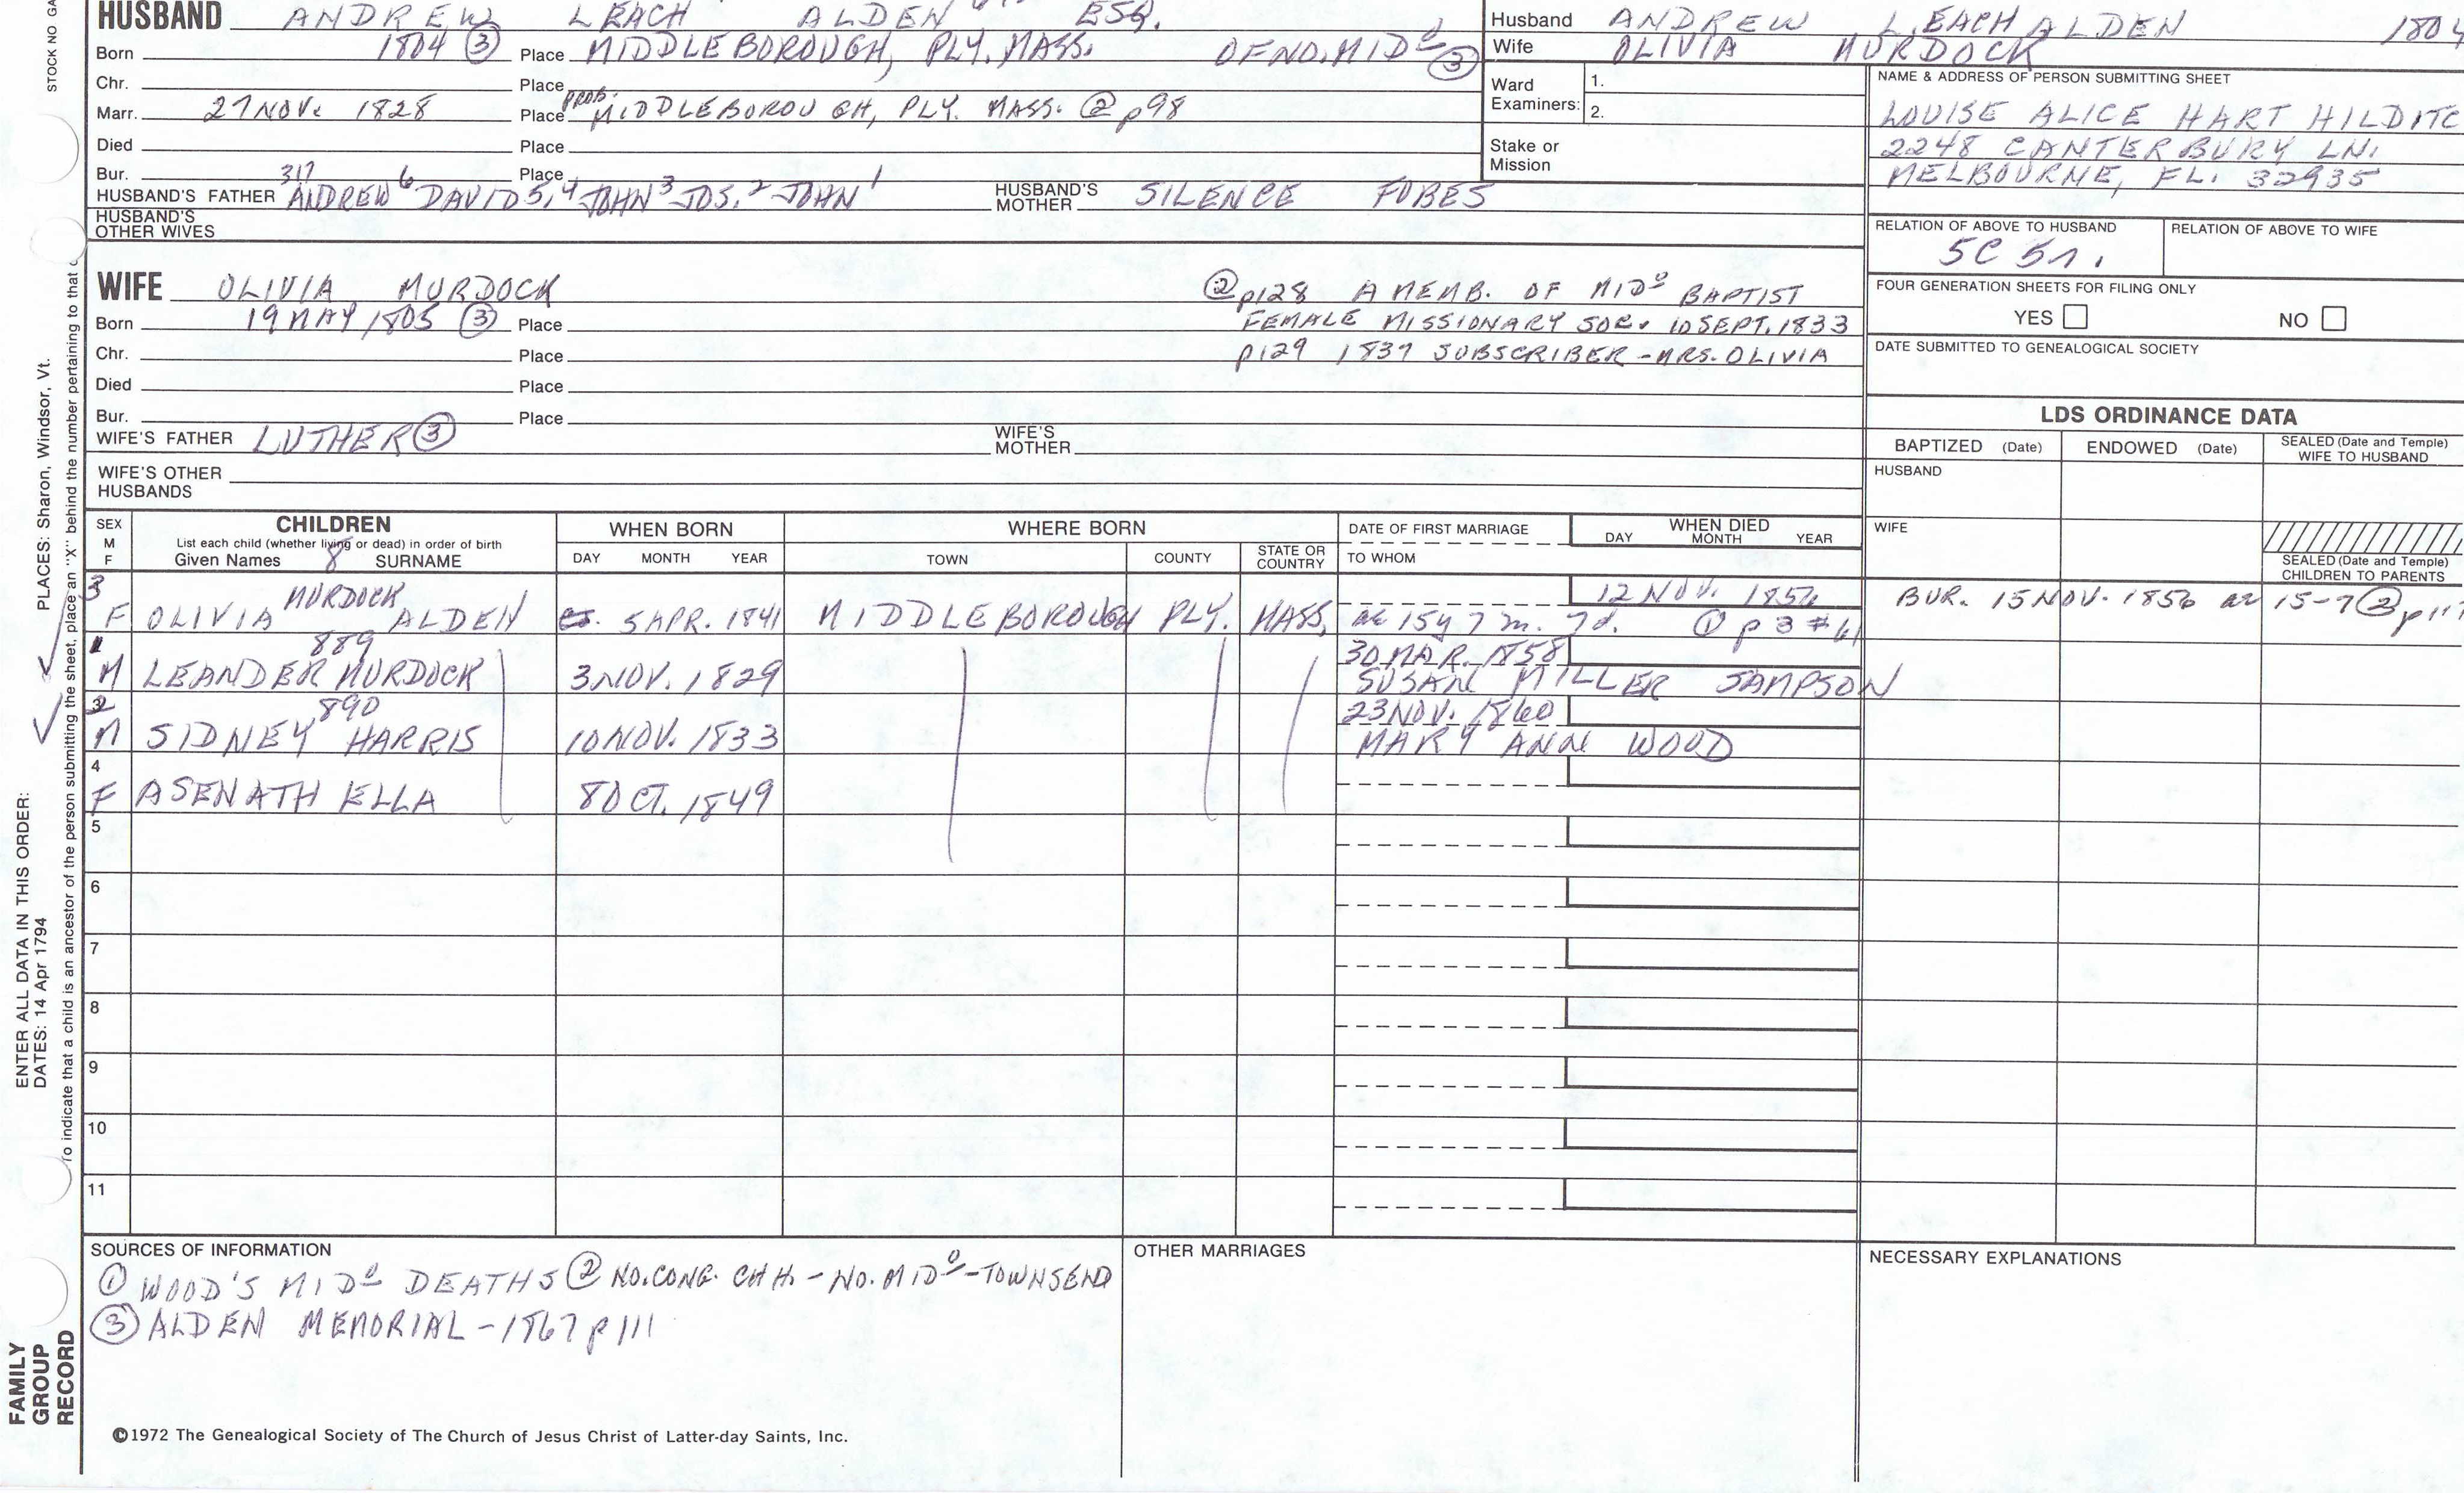 HUSBAND ANDREW LEACH ALDEN ESQ.
Born 1804 ③ Place MIDDLEBOROUGH, PLY. MASS. OF NO. MIDº ③
Chr. Place
Marr. 27 NOV. 1828 Place PROB. MIDDLEBOROUGH, PLY. MASS. ② p98
Died Place
Bur. Place
HUSBAND'S FATHER 317 ANDREW⁶ DAVID⁵,⁴ JOHN³ JOS.² JOHN¹ HUSBAND'S MOTHER SILENCE FOBES
HUSBAND'S OTHER WIVES
Husband ANDREW LEACH ALDEN 1804
Wife OLIVIA MURDOCK
Ward Examiners: 1.
2.
Stake or Mission
NAME & ADDRESS OF PERSON SUBMITTING SHEET
LOUISE ALICE HART HILDITC
2248 CANTERBURY LN.
MELBOURNE, FL. 32935
RELATION OF ABOVE TO HUSBAND RELATION OF ABOVE TO WIFE
5C 5
FOUR GENERATION SHEETS FOR FILING ONLY
YES NO
DATE SUBMITTED TO GENEALOGICAL SOCIETY
WIFE OLIVIA MURDOCK
Born 19 MAY 1805 ③ Place
Chr. Place
Died Place
Bur. Place
② p128 A MEMB. OF MIDº BAPTIST
FEMALE MISSIONARY SOC. 10 SEPT. 1833
p129 1837 SUBSCRIBER - MRS. OLIVIA
WIFE'S FATHER LUTHER ③ WIFE'S MOTHER
WIFE'S OTHER HUSBANDS
LDS ORDINANCE DATA
BAPTIZED (Date) ENDOWED (Date) SEALED (Date and Temple) WIFE TO HUSBAND
HUSBAND
WIFE
SEALED (Date and Temple) CHILDREN TO PARENTS
SEX M F CHILDREN WHEN BORN WHERE BORN DATE OF FIRST MARRIAGE WHEN DIED
List each child (whether living or dead) in order of birth
Given Names 8 SURNAME DAY MONTH YEAR TOWN COUNTY STATE OR COUNTRY TO WHOM DAY MONTH YEAR
3 F OLIVIA MURDOCK ALDEN 5 APR. 1841 MIDDLEBOROUGH PLY. MASS. 12 NOV. 1856 BUR. 15 NOV. 1856 ae 15-7 ②
ae 15y 7m. 7d. ① p3 #61
1 M 889 LEANDER MURDOCK 3 NOV. 1829 30 MAR. 1858
SUSAN MILLER SAMPSON
2 M 890 SIDNEY HARRIS 10 NOV. 1833 23 NOV. 1860
MARY ANN WOOD
4 F ASENATH ELLA 8 OCT. 1849
5
6
7
8
9
10
11
SOURCES OF INFORMATION OTHER MARRIAGES NECESSARY EXPLANATIONS
① WOOD'S MIDº DEATHS ② NO. CONG. CHH. - NO. MIDº - TOWNSEND
③ ALDEN MEMORIAL - 1867 p111
©1972 The Genealogical Society of The Church of Jesus Christ of Latter-day Saints, Inc.
STOCK NO GA
PLACES: Sharon, Windsor, Vt.
ENTER ALL DATA IN THIS ORDER:
DATES: 14 Apr 1794
To indicate that a child is an ancestor of the person submitting the sheet, place an "X" behind the number pertaining to that
FAMILY
GROUP
RECORD